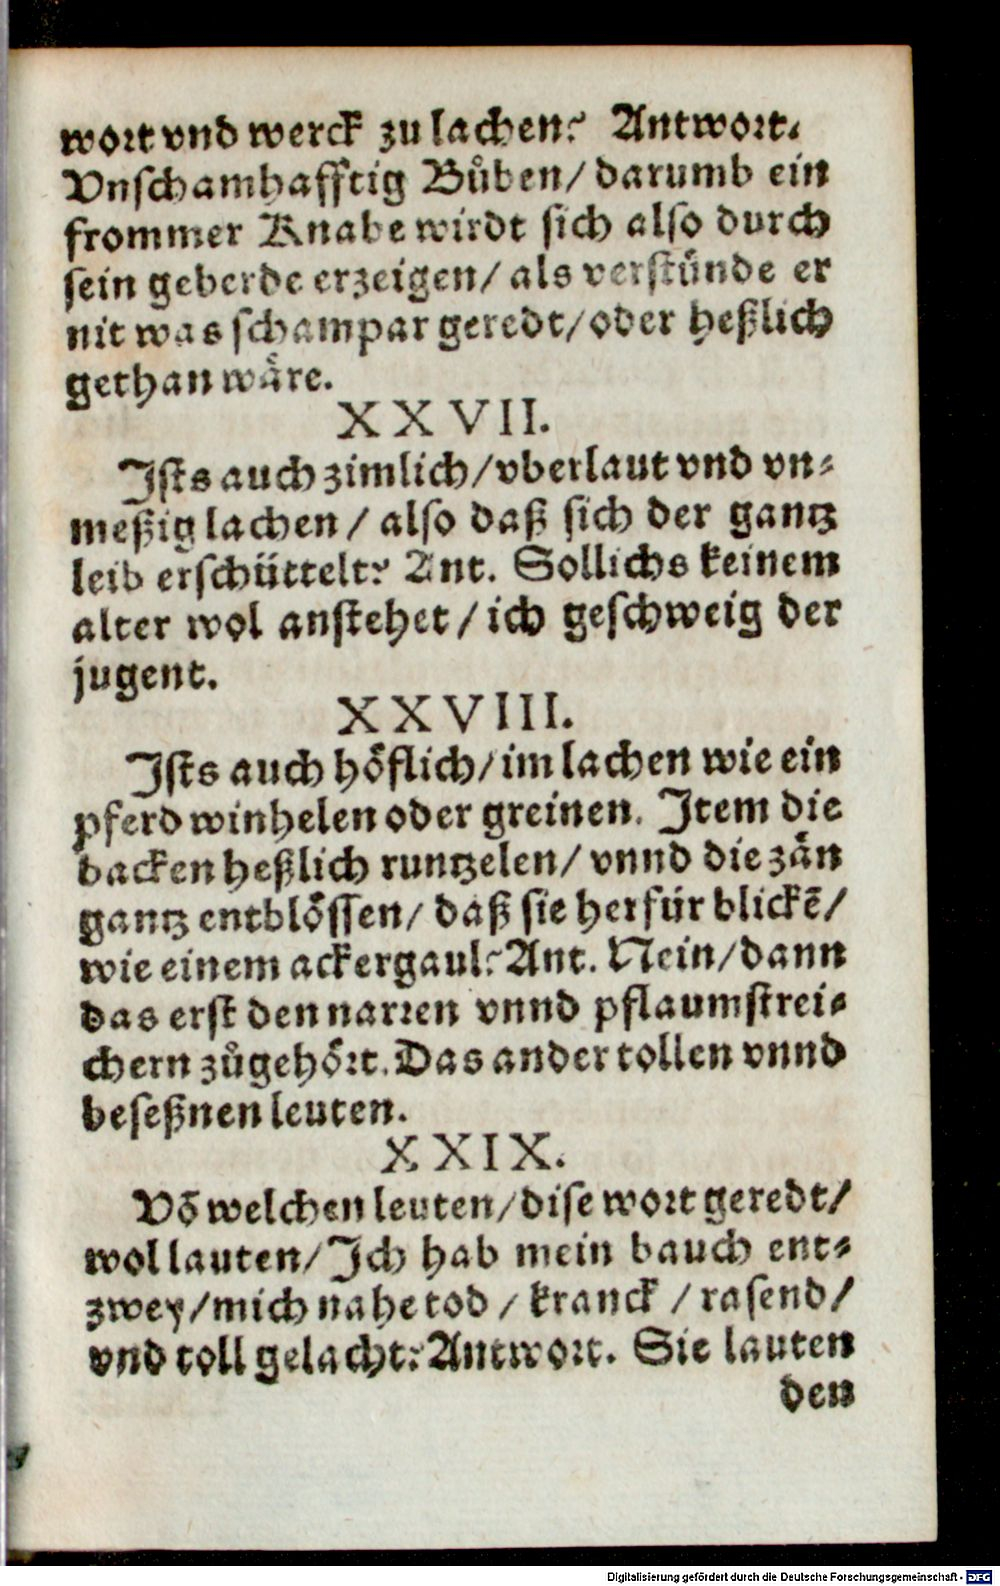 wort vnd werck zu lachen? Antwort.
Vnschamhafftig Bůben/ darumb ein
frommer Knabe wirdt sich also durch
sein geberde erzeigen/ als verstünde er
nit was schampar geredt/ oder heßlich
gethan wäre.
XXVII.
Ists auch zimlich/ vberlaut vnd vn⸗
meßig lachen/ also daß sich der gantz
leib erschüttelt? Ant. Sollichs keinem
alter wol anstehet/ ich geschweig der
jugent.
XXVIII.
Ists auch höflich/ im lachen wie ein
pferd winhelen oder greinen. Item die
backen heßlich runtzelen/ vnnd die zän
gantz entblössen/ daß sie herfür blickẽ/
wie einem ackergaul? Ant. Nein/ dann
das erst den narren vnnd pflaumstrei⸗
chern zůgehört. Das ander tollen vnnd
beseßnen leuten.
XXIX.
Võ welchen leuten/ dise wort geredt/
wol lauten/ Ich hab mein bauch ent⸗
zwey/ mich nahe tod / kranck / rasend/
vnd toll gelacht? Antwort. Sie lauten
den
Digitalisierung gefördert durch die Deutsche Forschungsgemeinschaft - DFG